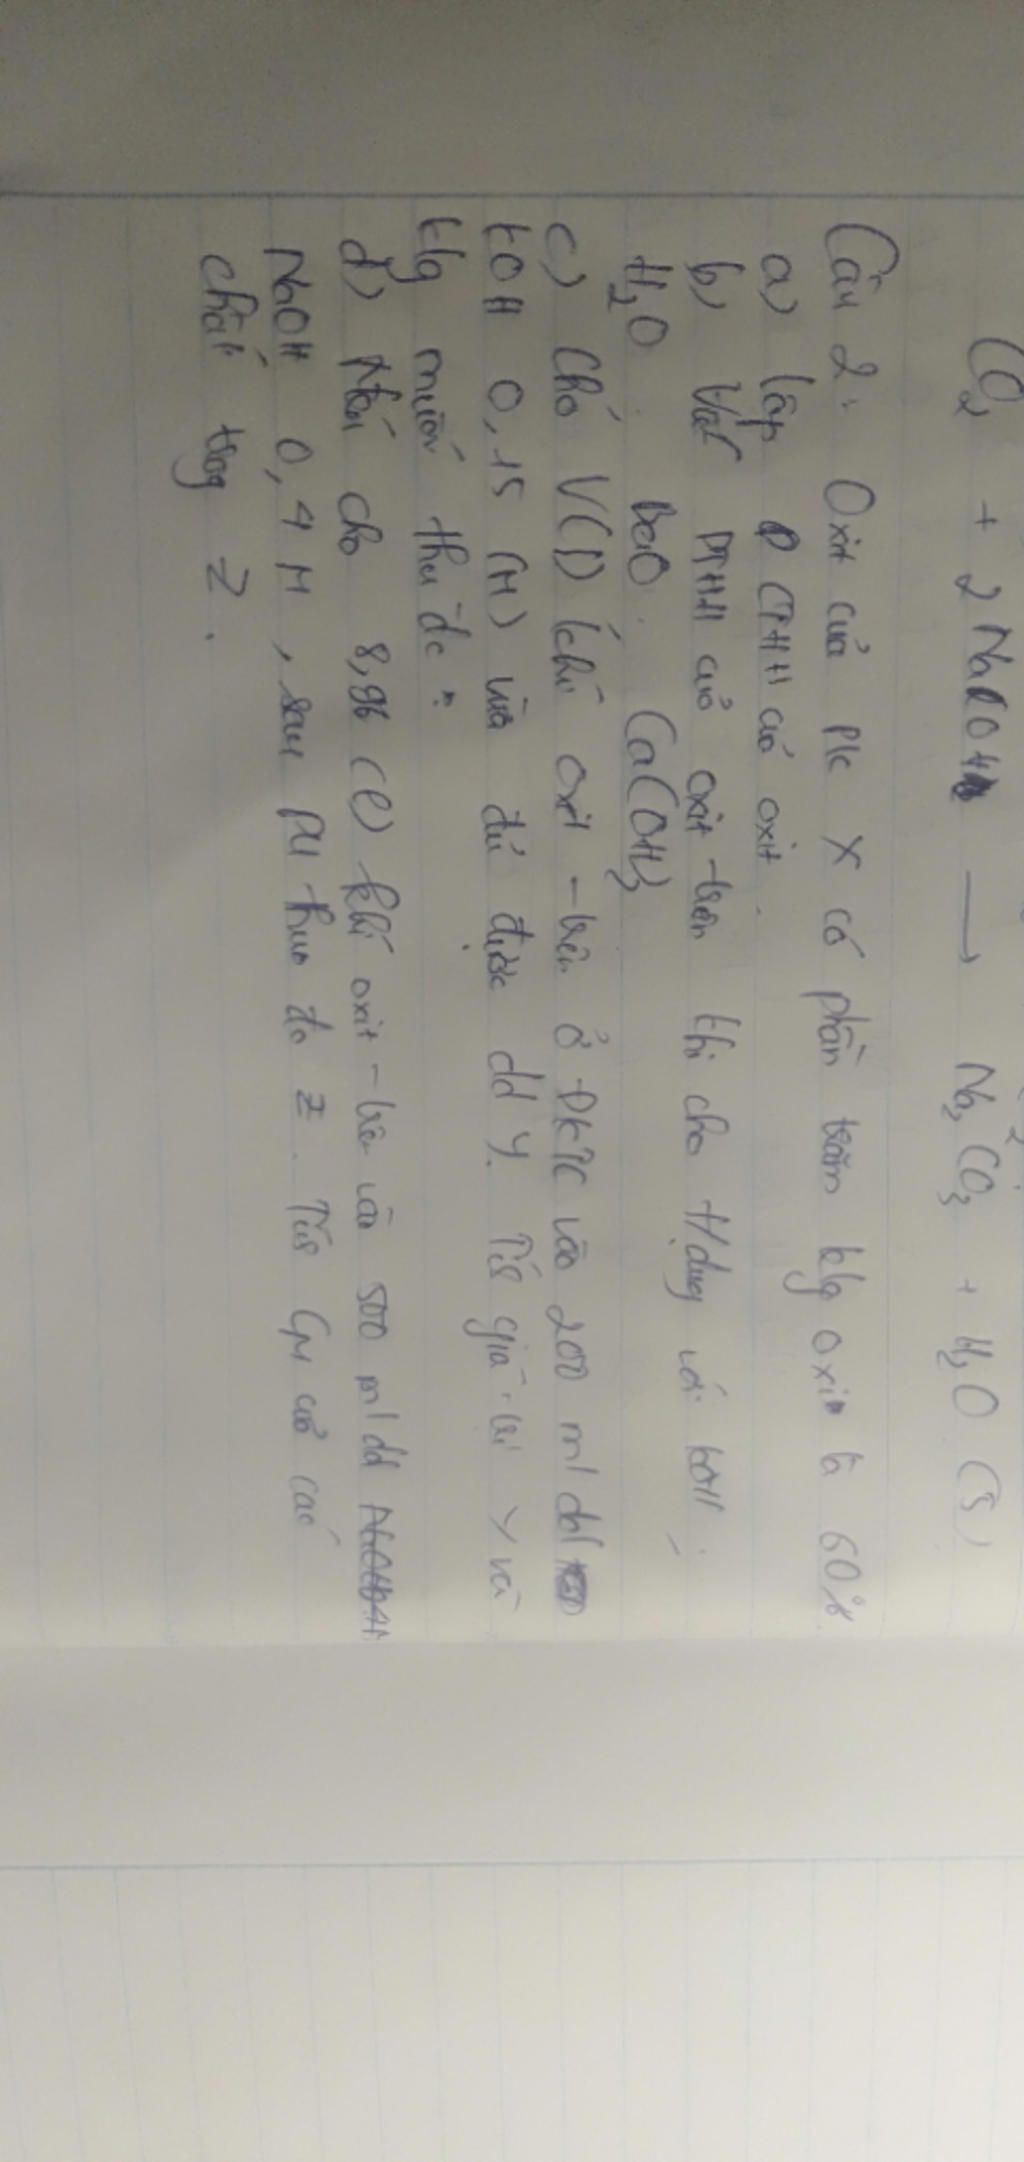 CO₂ + 2NaOH → Na₂CO₃ + H₂O
Câu 2: Oxit của plk X có phần trăm klg oxi là 60%
a) lập CTHH củ oxit.
b) Viết PTHH củ oxit trên khi cho t/dụng với KOH,
H₂O. BaO. Ca(OH)₂
c) Cho V(l) khí oxit trên ở ĐKTC vào 200 ml dd
KOH 0,15 (M) vừa đủ được dd Y. Tís giá trị V và
klg muối thu đc?
d) Nếu cho 8,96 (l) khí oxit trên vào 500 ml dd
NaOH 0,4 M, sau PỨ thu đc Z. Tís CM củ các
chất trog Z.